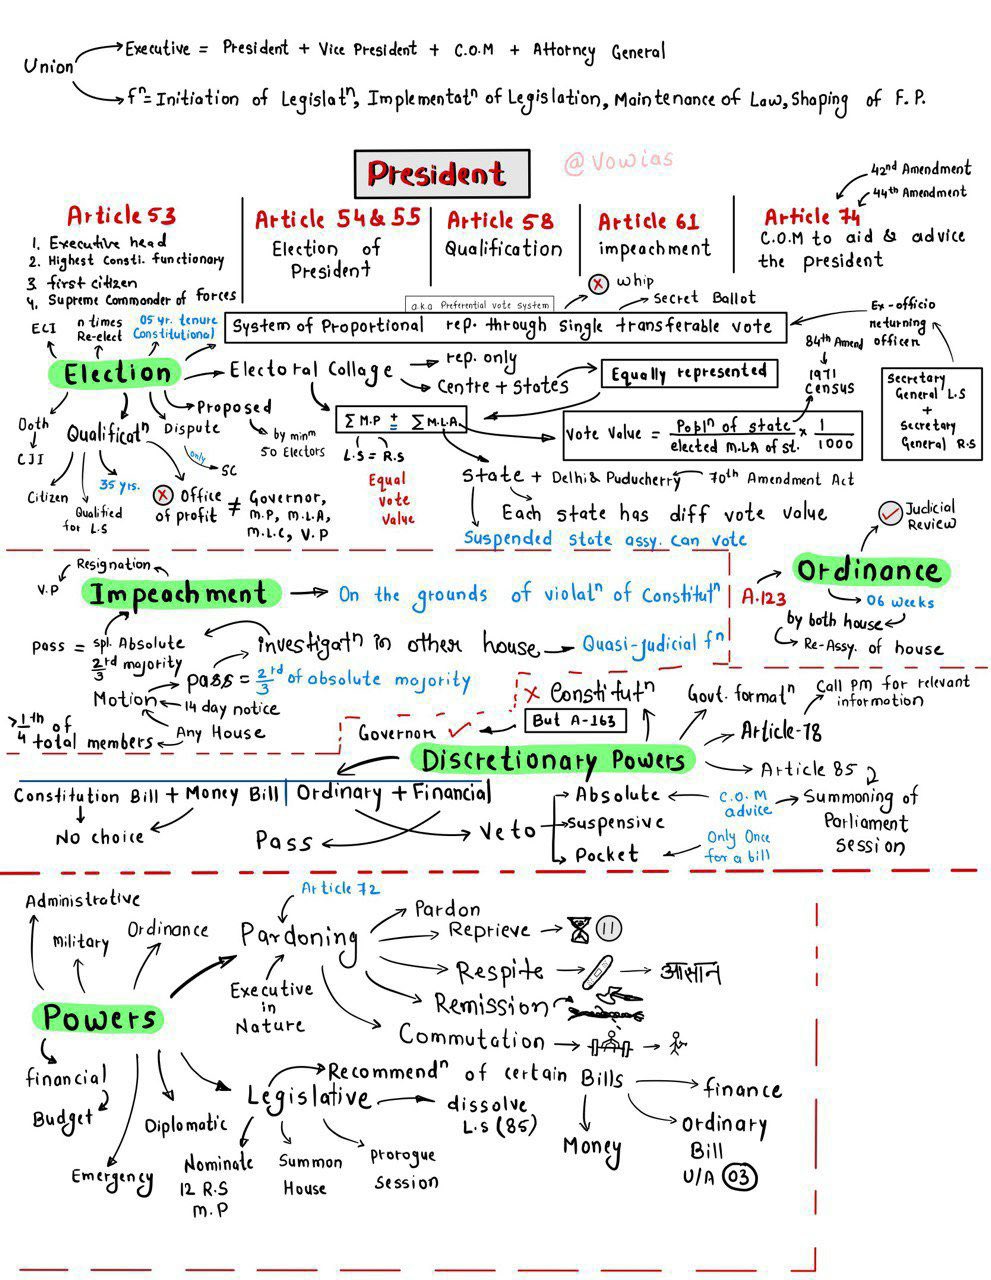 Union
Executive = President + Vice President + C.O.M + Attorney General
fⁿ = Initiation of Legislatⁿ, Implementatⁿ of Legislation, Maintenance of Law, Shaping of F.P.
President
@vowias
42nd Amendment
44th Amendment
Article 53
1. Executive head
2. Highest Consti. functionary
3. first citizen
4. Supreme Commander of forces
Article 54 & 55
Election of
President
Article 58
Qualification
Article 61
impeachment
Article 74
C.O.M to aid & advice
the president
whip
Secret Ballot
a.k.a Preferential vote system
System of Proportional rep. through single transferable vote
Ex-officio
returning
officer
Secretary
General L.S
+
Secretary
General R.S
ECI
n times
Re-elect
05 yr. tenure
Constitutional
Election
Electoral Collage
rep. only
Centre + states
Equally represented
84th Amend
1971
Census
Proposed
by minm
50 Electors
Ooth
CJI
Qualificatⁿ
Dispute
only
SC
Citizen
Qualified
for L.S
35 yrs.
Office
of profit
≠ Governor,
M.P, M.L.A,
M.L.C, V.P
Σ M.P ± Σ M.L.A
L.S = R.S
Equal
Vote
Value
Vote Value = Poplⁿ of state / elected M.LA of st. × 1/1000
State + Delhi & Puducherry
70th Amendment Act
Each state has diff vote value
Suspended state assy. can vote
Judicial
Review
Ordinance
A.123
06 weeks
by both house
Re-Assy. of house
Resignation
V.P
Impeachment
On the grounds of violatⁿ of Constitutⁿ
pass = spl. Absolute
2/3 rd majority
investigatⁿ in other house
Quasi-judicial fⁿ
Motion
pass = 2/3 rd of absolute majority
14 day notice
>1/4 th of
total members
Any House
Constitutⁿ
But A-163
Governor
Discretionary Powers
Govt. formatⁿ
Call PM for relevant
information
Article-78
Article 85
Summoning of
Parliament
Session
Constitution Bill + Money Bill
Ordinary + Financial
No choice
Pass
Veto
Absolute
suspensive
Pocket
C.O.M
advice
Only Once
for a bill
Administrative
Military
Ordinance
Powers
financial
Budget
Emergency
Diplomatic
Article 72
Pardoning
Executive
in
Nature
Pardon
Reprieve
Respite
आसान
Remission
Commutation
Legislative
Recommendⁿ of certain Bills
finance
Ordinary
Bill
U/A 03
Money
dissolve
L.S (85)
Nominate
12 R.S
M.P
Summon
House
prorogue
session